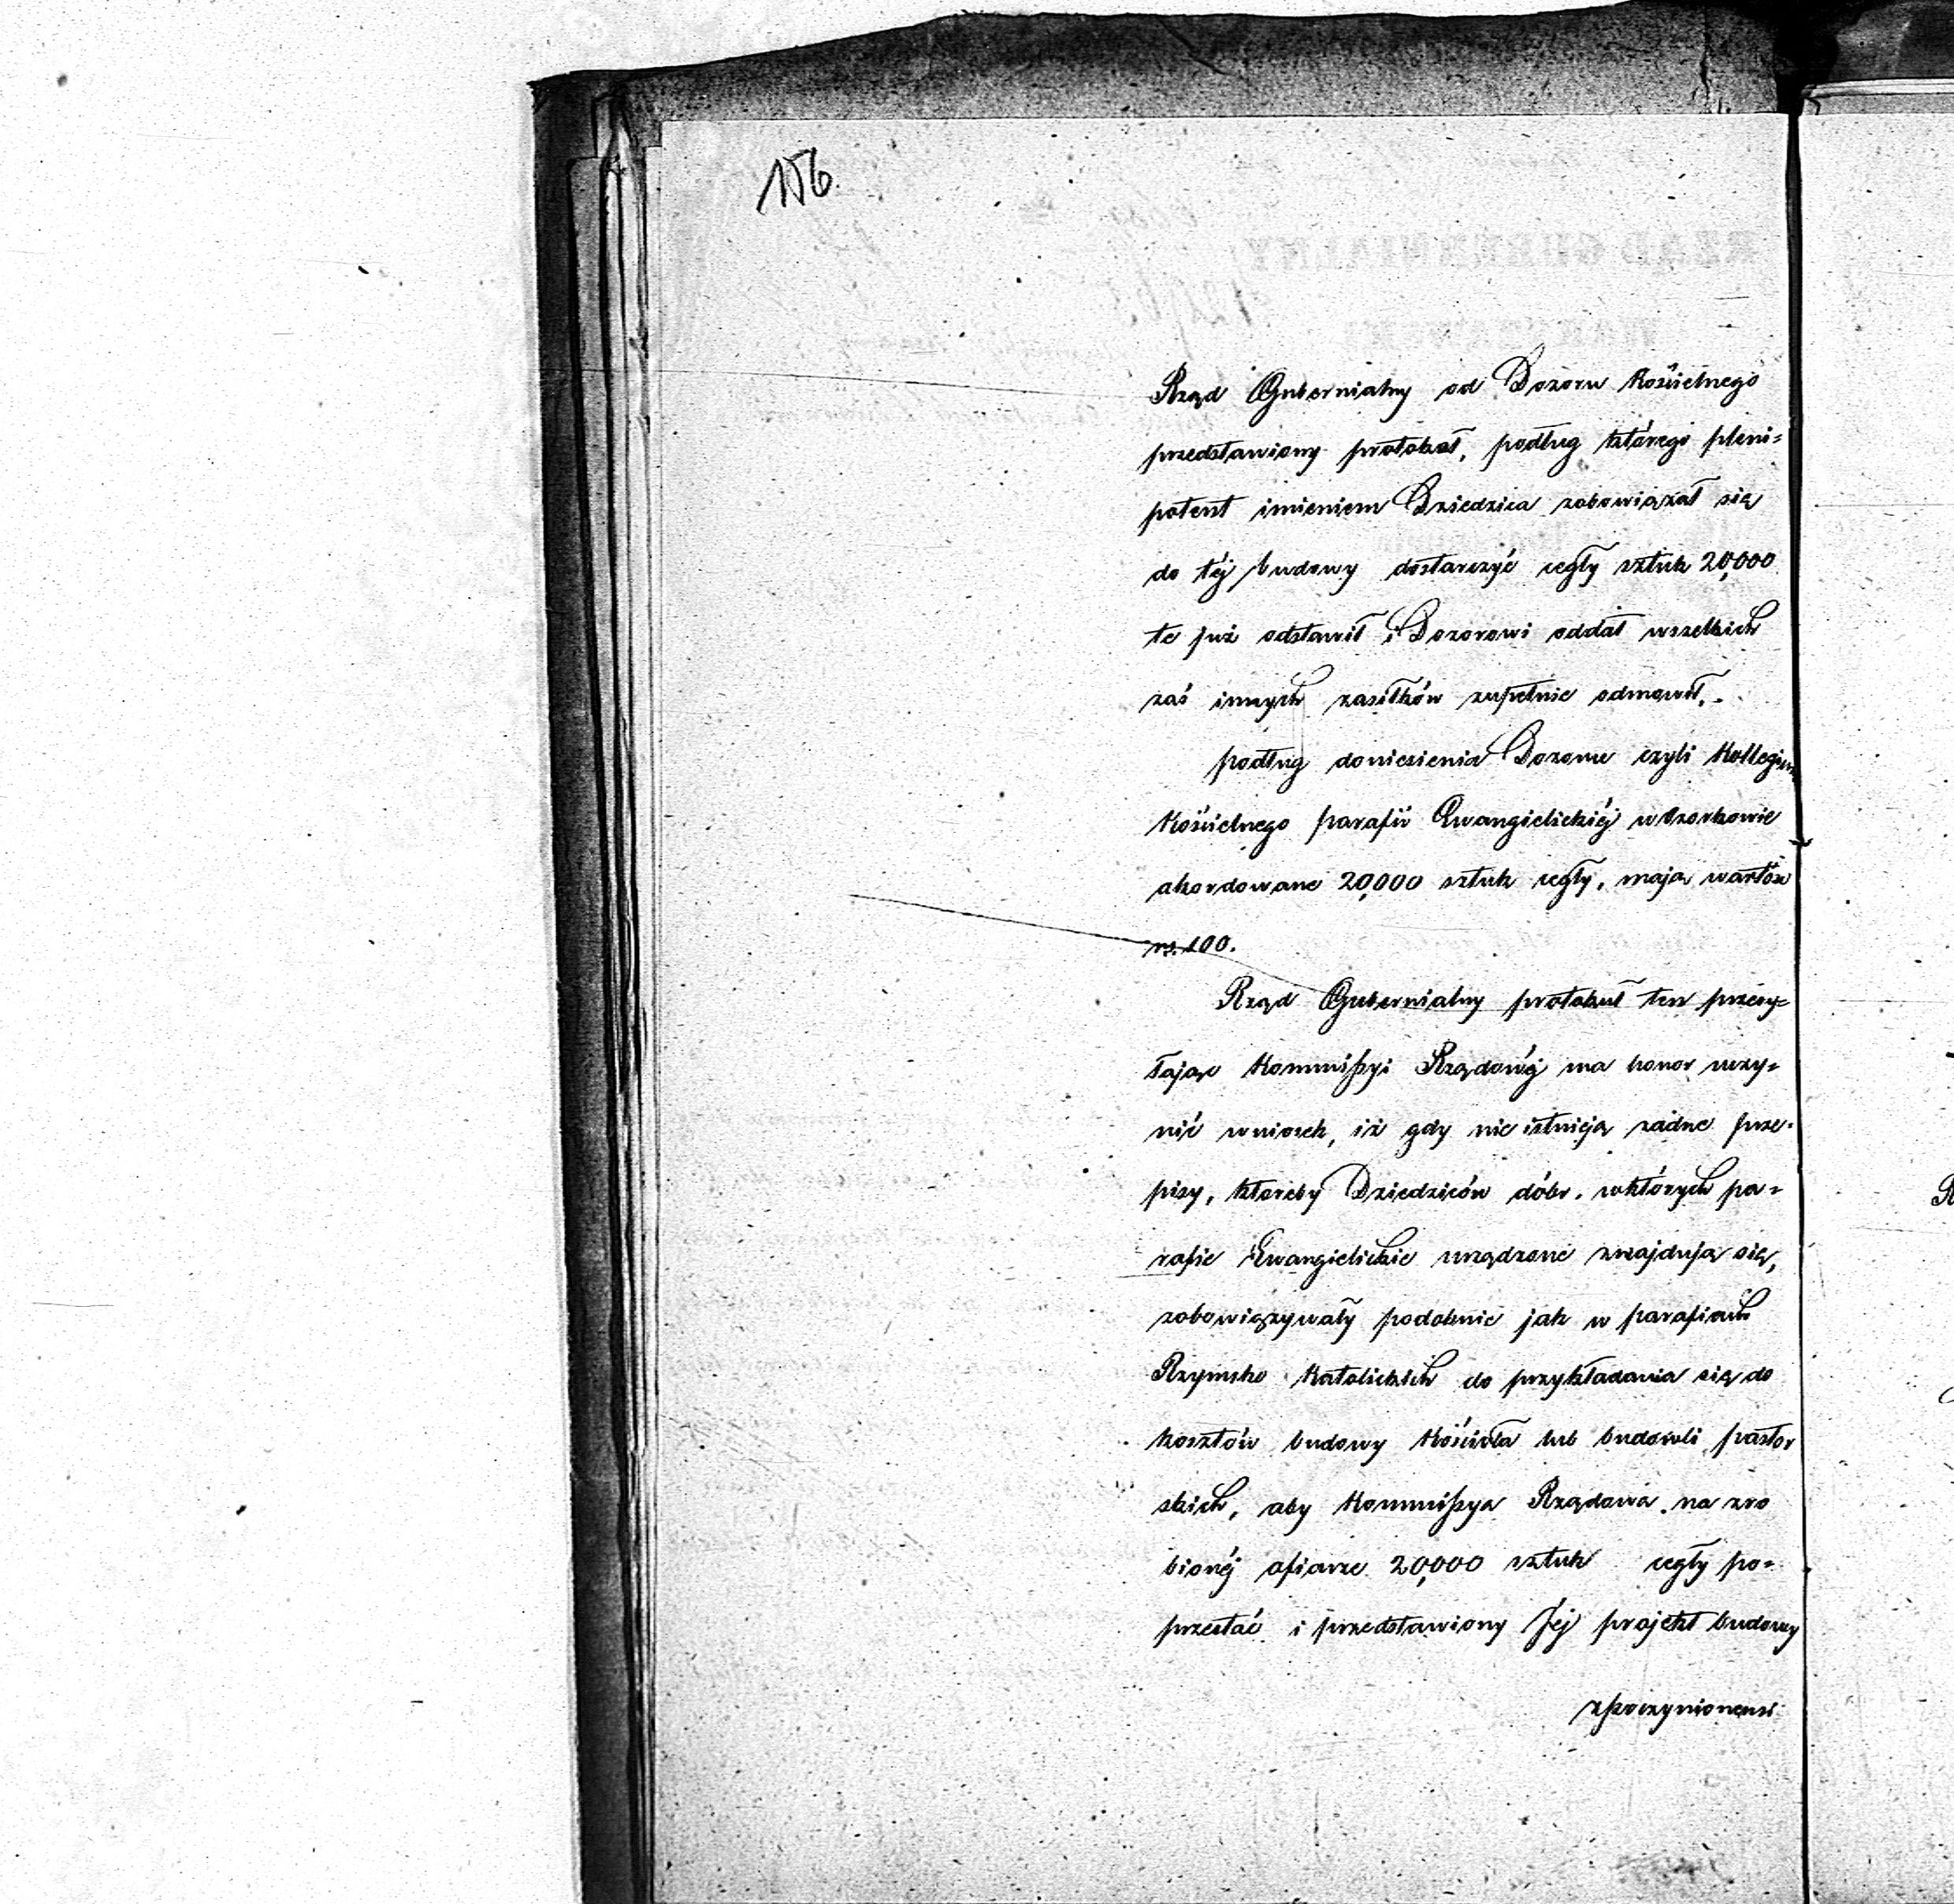 156.
Rząd Gubernialny od Dozoru Kościelnego
przedstawiony protokół, podług którego pleni=
potent imieniem Dziedzica zobowiązał się
do téj budowy dostarczyć cegły sztuk 20,000
te już odstawił i Dozorowi oddał wszelkich
zaś innych zasiłków zupełnie odmówił.
podług doniesienia Dozoru czyli Kollegium
Kościelnego parafii Ewangielickiéj w Ozorkowie
akordowane 20,000 sztuk cegły, mają wartość
rs. 100.
Rząd Gubernialny protokuł ten przesy=
łając Kommissyi Rządowéj ma honor uczy=
nić wniosek, iż gdy nie istnieją żadne prze=
pisy, któreby Dziedziców dóbr, w których pa=
rafie Ewangielickie urządzone znajdują się,
zobowiązywały podobnie jak w parafiach
Rzymsko Katolickich do przykładania się do
kosztów budowy Kościoła lub budowli pastor
skich, aby Kommissya Rządowa na zro
bionéj ofiarze 20,000 sztuk cegły po=
przestać i przedstawiony Jéj projekt budowy